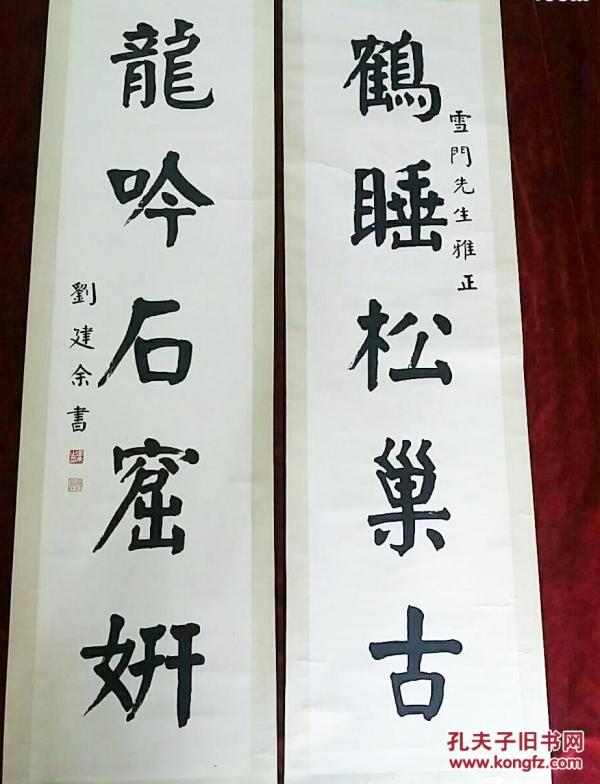 鶴睡松巢古
雪門先生雅正
龍吟石窟妍
劉建余書
孔夫子旧书网
www.kongfz.com